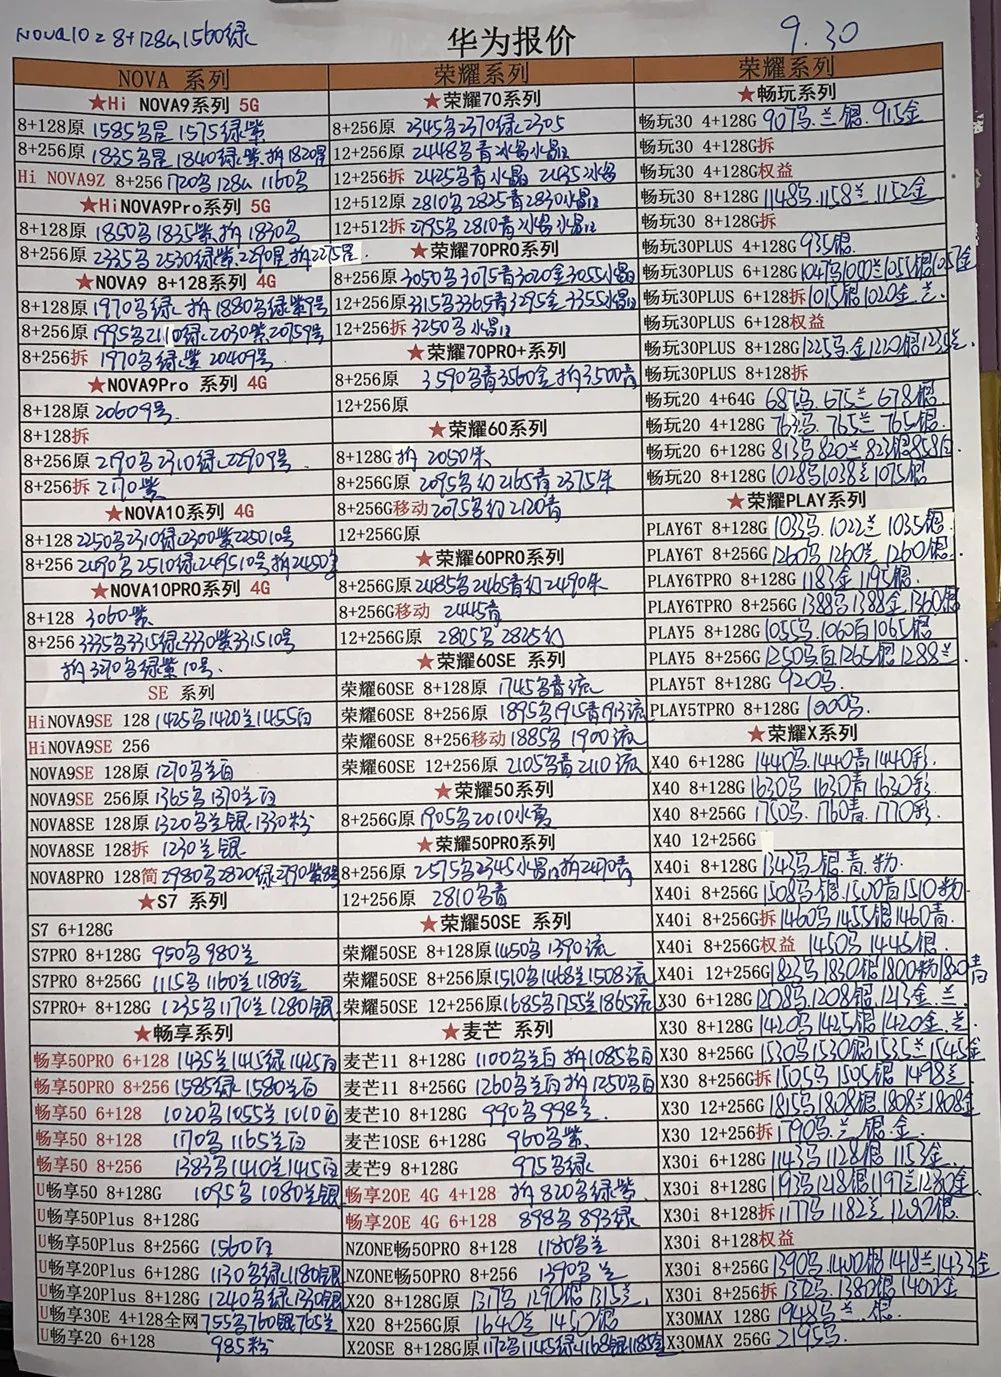 NOVA10Z 8+128G 1560绿
华为报价
9.30
NOVA 系列
★Hi NOVA9系列 5G
8+128原 1585乌星 1575绿紫
8+256原 1835乌星 1840绿紫 拆1820星
Hi NOVA9Z 8+256 1720乌 128G 1160乌
★HiNOVA9Pro系列 5G
8+128原 1850乌 1835紫 拆 1830乌
8+256原 2335乌 2530绿紫 2290星 拆2275星
★NOVA9 8+128系列 4G
8+128原 1970乌绿 拆 1880乌绿紫9号
8+256原 1995乌 2110绿 2030紫 2075 9号
8+256拆 1970乌绿紫 2040 9号
★NOVA9Pro 系列 4G
8+128原 2060 9号
8+128拆
8+256原 2190乌 2310绿 2290 9号
8+256拆 2170紫
★NOVA10系列 4G
8+128 2250乌 2310绿 2300紫 2250 10号
8+256 2490乌 2510绿 2495 10号 拆2450
★NOVA10PRO系列 4G
8+128 3060紫
8+256 3335乌 3315绿 3330紫 3315 10号
拆3270乌绿紫10号
SE 系列
HiNOVA9SE 128 1425乌 1420兰 1455白
HiNOVA9SE 256
NOVA9SE 128原 1270乌兰白
NOVA9SE 256原 1365乌 1370兰白
NOVA8SE 128原 1320乌兰银 1330粉
NOVA8SE 128拆 1230兰银
NOVA8PRO 128简 2980乌 2820绿 2790紫8号
★S7 系列
S7 6+128G
S7PRO 8+128G 950乌 980兰
S7PRO 8+256G 1115乌 1160兰 1180金
S7PRO+ 8+128G 1235乌 1170兰 1280银
★畅享系列
畅享50PRO 6+128 1435兰 1415绿 1425白
畅享50PRO 8+256 1585绿 1580兰白
畅享50 6+128 1020乌 1055兰 1010白
畅享50 8+128 1170乌 1165兰白
畅享50 8+256 1383乌 1410兰 1415白
U畅享50 8+128G 1095乌 1080兰银
U畅享50Plus 8+128G
U畅享50Plus 8+256G 1560白
U畅享20Plus 6+128G 1130乌绿 1180银
U畅享20Plus 8+128G 1240乌绿 1330银
U畅享30E 4+128全网 755乌 760银 765兰
U畅享20 6+128 985粉
荣耀系列
★荣耀70系列
8+256原 2345乌 2370绿 2305
12+256原 2448乌青冰乌水晶
12+256拆 2425乌青水晶 2435冰乌
12+512原 2810乌 2825青 2830水晶
12+512拆 2795乌 2810青冰乌水晶
★荣耀70PRO系列
8+256原 3050乌 3075青 3020金 3055水晶
12+256原 3315乌 3365青 3295金 3355水晶
12+256拆 3250乌水晶
★荣耀70PRO+系列
8+256原 3590乌青 3560金 拆3500青
12+256原
★荣耀60系列
8+128G 拆 2050朱
8+256G原 2095乌幻 2165青 2375朱
8+256G移动 2075乌幻 2120青
12+256G原
★荣耀60PRO系列
8+256G原 2485乌 2465青幻 2490朱
8+256G移动 2445青
12+256G原 2805乌 2825幻
★荣耀60SE 系列
荣耀60SE 8+128原 1745乌青流
荣耀60SE 8+256原 1895乌 1915青 1913流
荣耀60SE 8+256移动 1885乌 1900流
荣耀60SE 12+256原 2105乌青 2110流
★荣耀50系列
8+256G原 1905乌 2010水夏
★荣耀50PRO系列
8+256原 2575乌 2345水晶 拆2470青
12+256原 2810乌青
★荣耀50SE 系列
荣耀50SE 8+128原 1450乌 1390流
荣耀50SE 8+256原 1510乌 1468兰 1508流
荣耀50SE 12+256原 1685乌 1755兰 1865流
★麦芒 系列
麦芒11 8+128G 1100乌兰白 拆1085乌白
麦芒11 8+256G 1260乌兰白 拆1250乌白
麦芒10 8+128G 990乌 998兰
麦芒10SE 6+128G 960乌紫
麦芒9 8+128G 975乌绿
畅享20E 4G 4+128 拆820乌绿紫
畅享20E 4G 6+128 898乌 893绿
NZONE畅50PRO 8+128 1180乌兰
NZONE畅50PRO 8+256 1390乌兰
X20 8+128G原 1317乌 1290银 1315兰
X20 8+256G原 1640兰 1450银
X20SE 8+128G原 1172乌 1145绿 1168银 1185金
荣耀系列
★畅玩系列
畅玩30 4+128G 907乌.兰.银 915金
畅玩30 4+128G拆
畅玩30 4+128G权益
畅玩30 8+128G 1148乌 1158兰 1152金
畅玩30 8+128G拆
畅玩30PLUS 4+128G 935银
畅玩30PLUS 6+128G 1047乌 1070兰 1055银 1057金
畅玩30PLUS 6+128拆 1015银 1020金.兰
畅玩30PLUS 6+128权益
畅玩30PLUS 8+128G 1225乌.金 1220银 1235兰
畅玩30PLUS 8+128拆
畅玩20 4+64G 687乌 675兰 678银
畅玩20 4+128G 763乌 765兰 765银
畅玩20 6+128G 813乌 820兰 823银 858白
畅玩20 8+128G 1028乌 1038兰 1075银
★荣耀PLAY系列
PLAY6T 8+128G 1033乌 1022兰 1035银
PLAY6T 8+256G 1260乌 1260兰 1260银
PLAY6TPRO 8+128G 1183金 1195银
PLAY6TPRO 8+256G 1388乌 1388金 1360银
PLAY5 8+128G 1055乌 1060白 1065银
PLAY5 8+256G 1250乌白 1265银 1288兰
PLAY5T 8+128G 920乌
PLAY5TPRO 8+128G 1200乌
★荣耀X系列
X40 6+128G 1440乌 1440青 1440彩
X40 8+128G 1630乌 1630青 1630彩
X40 8+256G 1750乌 1760青 1770彩
X40 12+256G
X40i 8+128G 1343乌.银.青.粉
X40i 8+256G 1508乌.银 1500青 1510粉
X40i 8+256G拆 1460乌 1455银 1460青
X40i 8+256G权益 1450乌 1445银
X40i 12+256G 1823乌 1830银 1800粉 1820青
X30 6+128G 1208乌 1208银 1213金.兰
X30 8+128G 1420乌 1425银 1420金.兰
X30 8+256G 1530乌 1530银 1535兰 1545金
X30 8+256G拆 1505乌 1505银 1498兰
X30 12+256G 1815乌 1808银 1808兰 1808金
X30 12+256拆 1790乌.兰.银.金
X30i 6+128G 1143乌 1128银 1153金
X30i 8+128G 1193乌 1218银 1197兰 1280金
X30i 8+128拆 1177乌 1182兰 1202银
X30i 8+128权益
X30i 8+256G 1390乌 1400银 1418兰 1433金
X30i 8+256拆 1372乌 1380银 1402金
X30MAX 128G 1948乌.兰.银
X30MAX 256G 2195乌